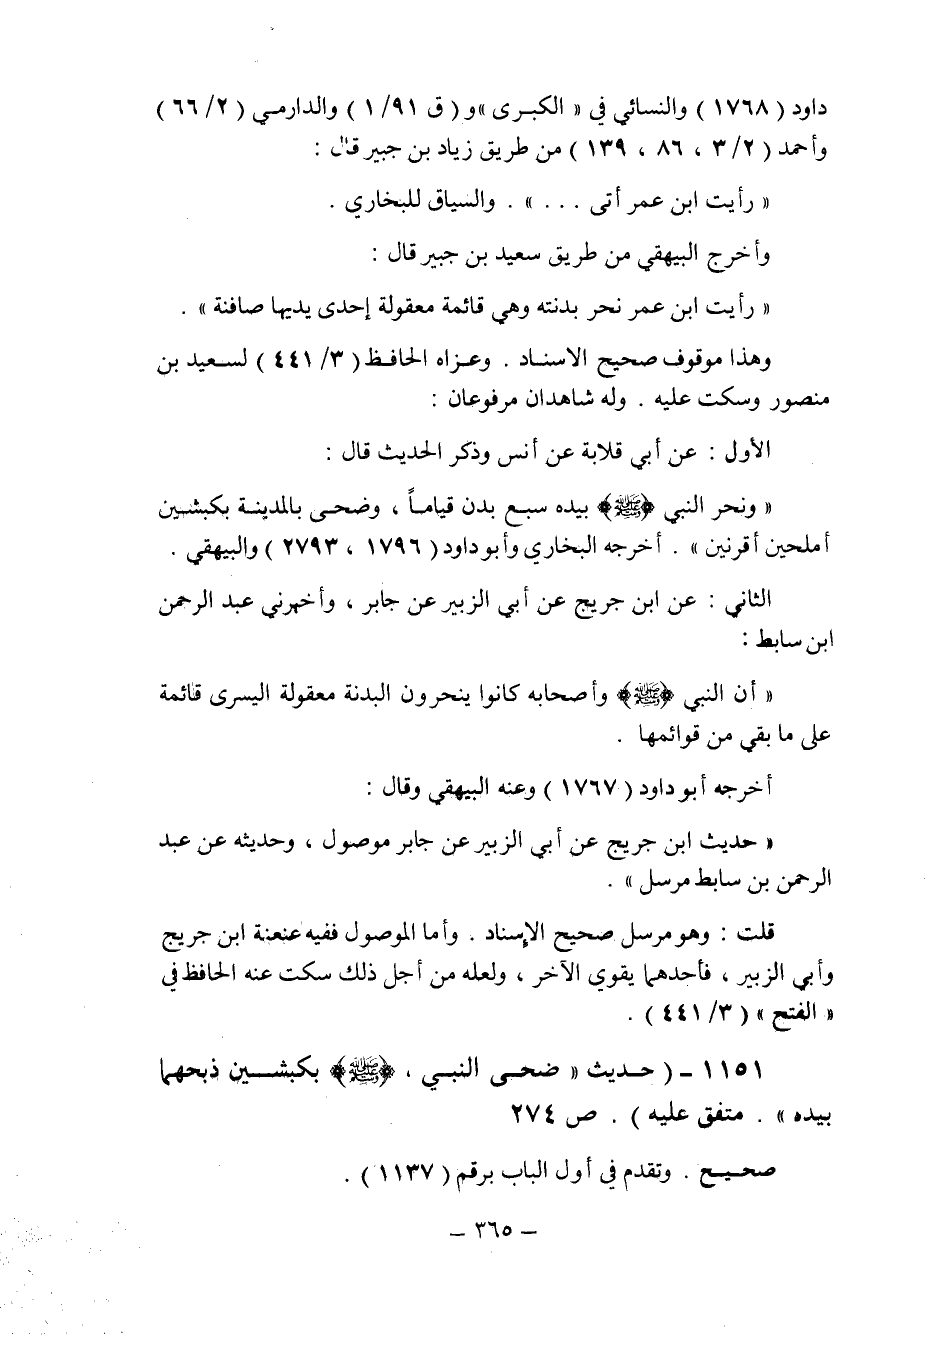 داود ( ١٧٦٨ ) والنسائي في « الكبرى »و ( ق ٩١/ ١ ) والدارمي ( ٢/ ٦٦ )
وأحمد ( ٢/ ٣ ، ٨٦ ، ١٣٩ ) من طريق زياد بن جبير قال :
« رأيت ابن عمر أتى . . . » . والسياق للبخاري .
وأخرج البيهقي من طريق سعيد بن جبير قال :
« رأيت ابن عمر نحر بدنته وهي قائمة معقولة إحدى يديها صافنة » .
وهذا موقوف صحيح الاسناد . وعزاه الحافظ ( ٣/ ٤٤١ ) لسعيد بن
منصور وسكت عليه . وله شاهدان مرفوعان :
الأول : عن أبي قلابة عن أنس وذكر الحديث قال :
« ونحر النبي ﴿ﷺ﴾ بيده سبع بدن قياماً ، وضحى بالمدينة بكبشين
أملحين أقرنين » . أخرجه البخاري وأبو داود ( ١٧٩٦ ، ٢٧٩٣ ) والبيهقي .
الثاني : عن ابن جريج عن أبي الزبير عن جابر ، وأخبرني عبد الرحمن
ابن سابط :
« أن النبي ﴿ﷺ﴾ وأصحابه كانوا ينحرون البدنة معقولة اليسرى قائمة
على ما بقي من قوائمها .
أخرجه أبو داود ( ١٧٦٧ ) وعنه البيهقي وقال :
« حديث ابن جريج عن أبي الزبير عن جابر موصول ، وحديثه عن عبد
الرحمن بن سابط مرسل » .
قلت : وهو مرسل صحيح الإسناد . وأما الموصول ففيه عنعنة ابن جريج
وأبي الزبير ، فأحدهما يقوي الآخر ، ولعله من أجل ذلك سكت عنه الحافظ في
« الفتح » ( ٣/ ٤٤١ ) .
١١٥١ - ( حديث « ضحى النبي ، ﴿ﷺ﴾ بكبشين ذبحهما
بيده » . متفق عليه ) . ص ٢٧٤
صحيح . وتقدم في أول الباب برقم ( ١١٣٧ ) .
- ٣٦٥ -